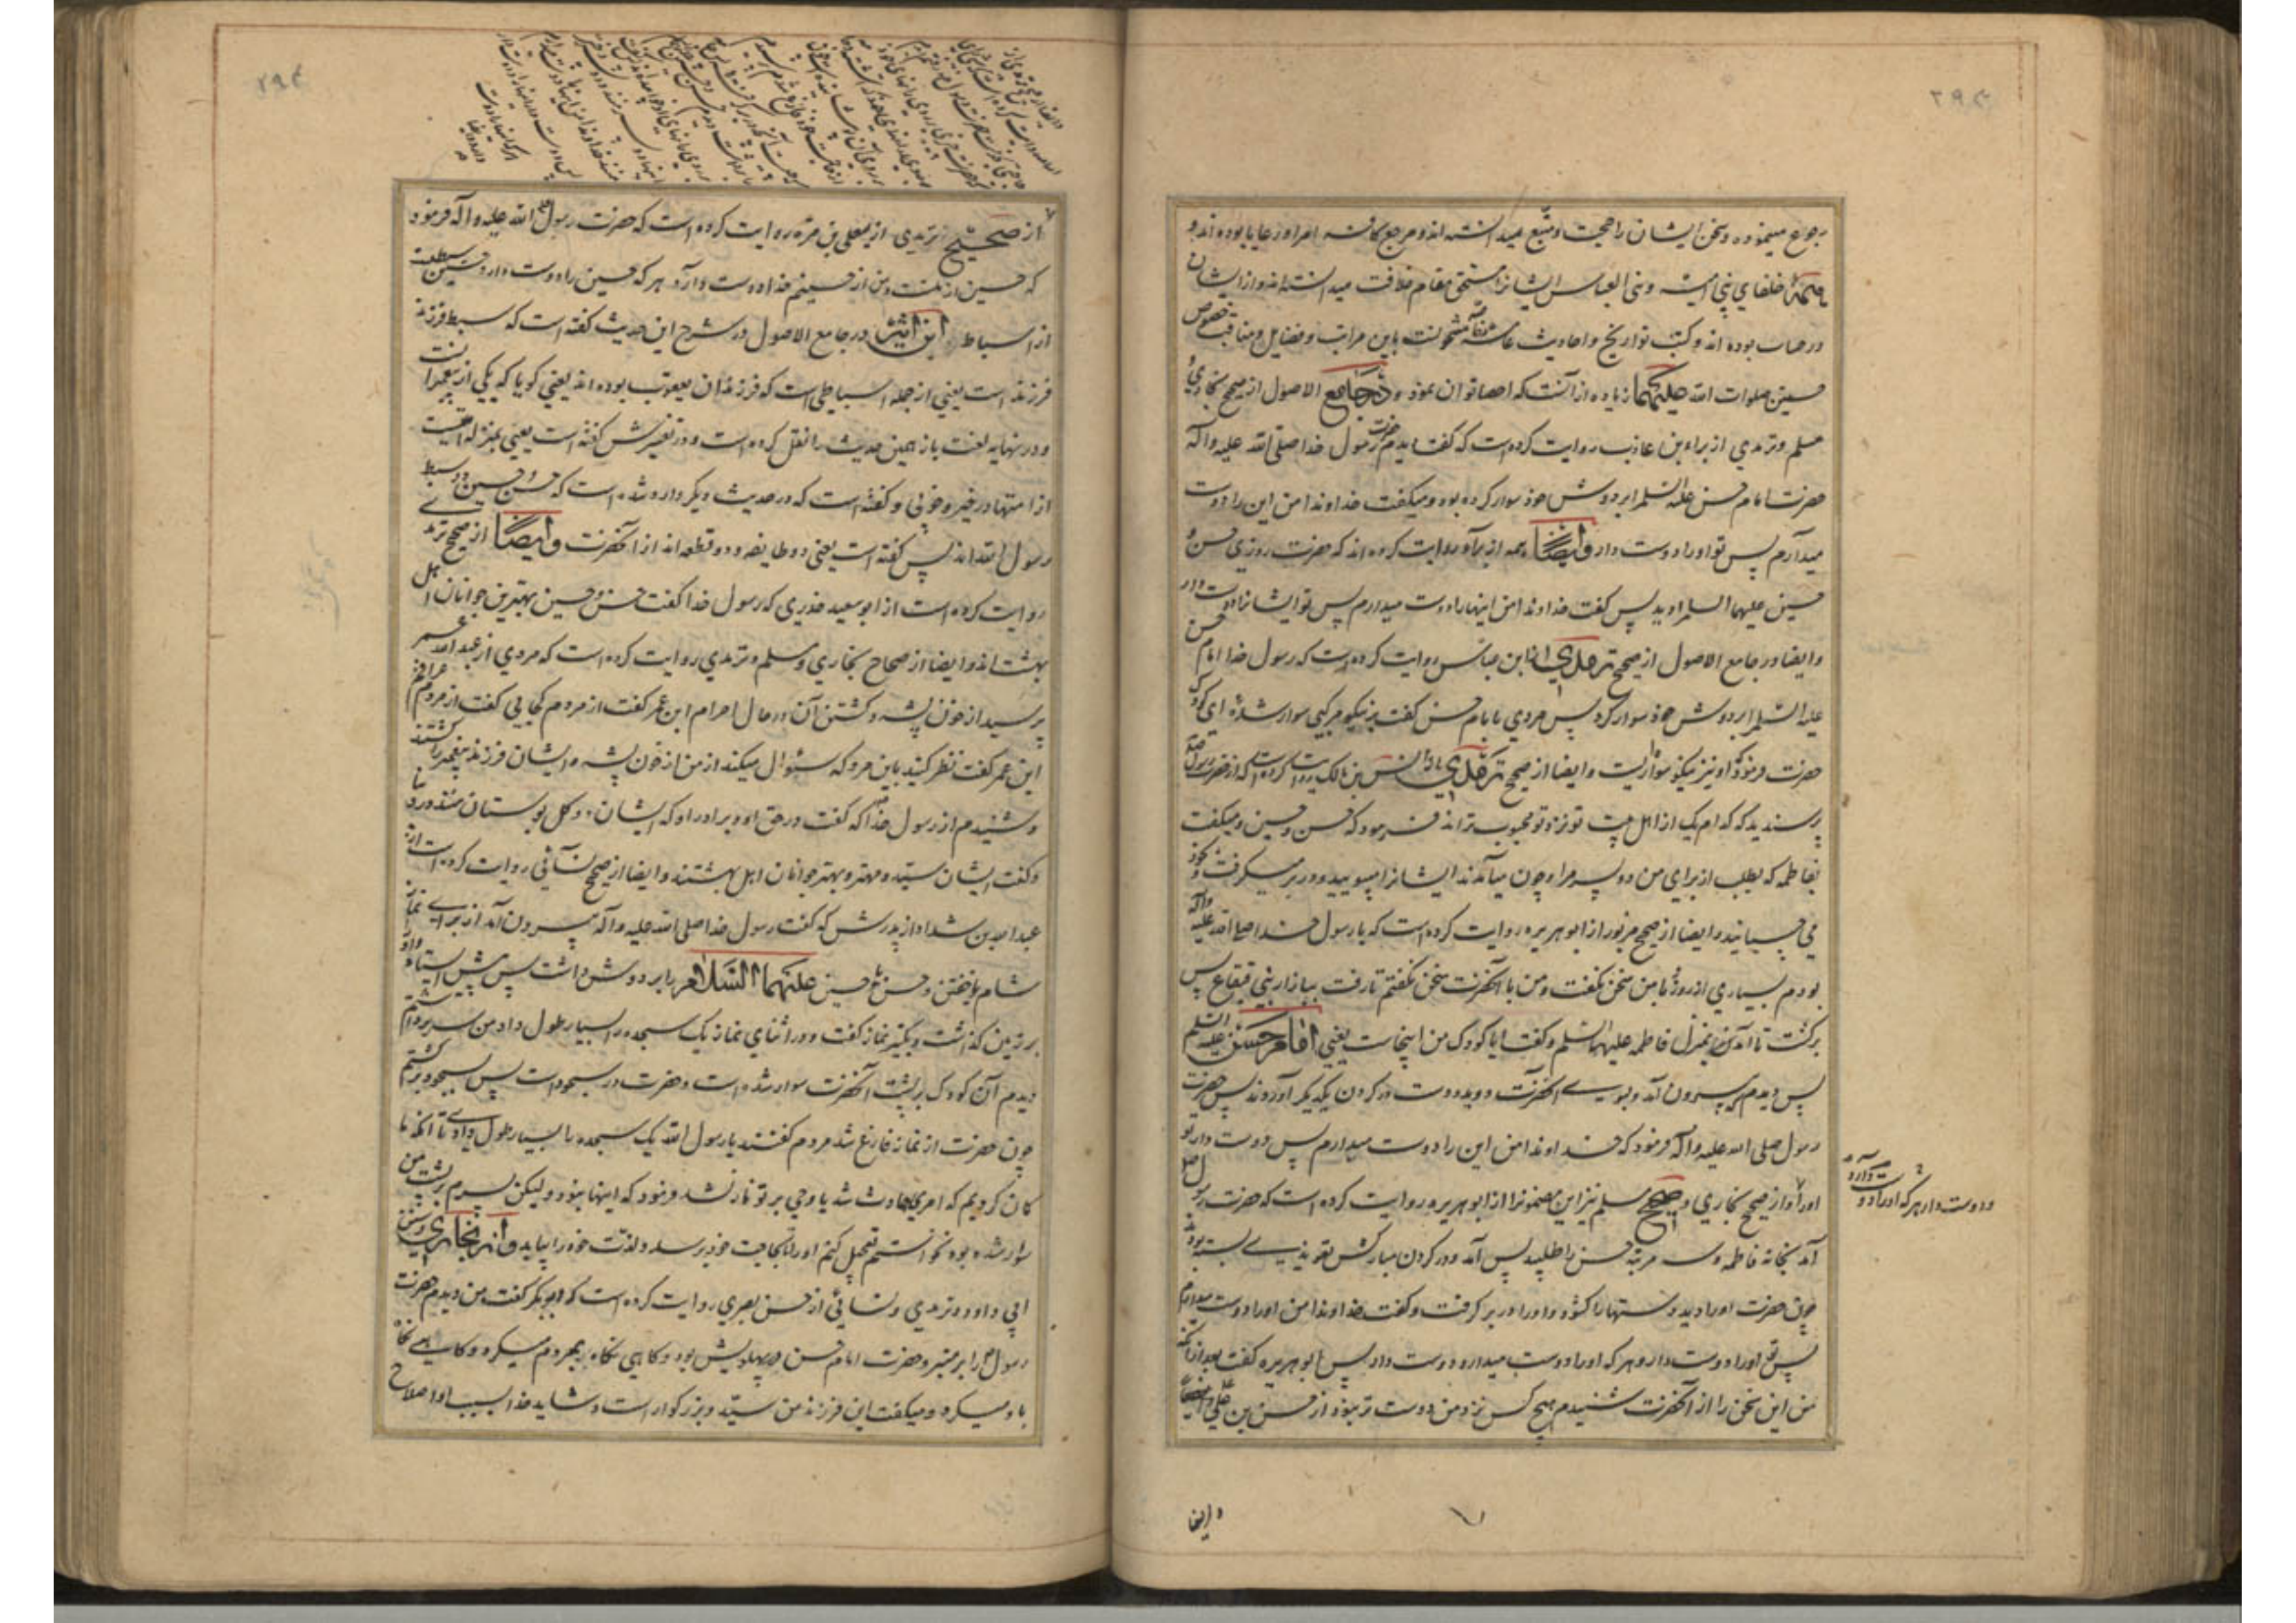 رجوع مینموده و سخن ایشان را حجت و متبع میدانسته اند و مرجع کافه امرا و رعایا بوده اند و
خلفای بنی امیه و بنی العباس ایشانرا مستحق مقام خلافت میدانسته اند و از ایشان
در حساب بوده اند و کتب تواریخ و احادیث عامه مشحونست باین مراتب و فضایل و مناقب مخصوص
حسنین صلوات الله علیهما زیاده از آنست که احصا توان نمود و در جامع الاصول از صحیح بخاری و
مسلم و ترمذی از براء بن عازب روایت کرده است که گفت دیدم حضرت رسول خدا صلی الله علیه و آله
حضرت امام حسن علیه السلم را بر دوش خود سوار کرده بود و میگفت خداوندا من این را دوست
میدارم پس تو او را دوست دار و ایضا همه از براء روایت کرده اند که حضرت روزی حسن و
حسین علیهما السلم را دید پس گفت خداوندا من اینها را دوست میدارم پس تو ایشانرا دوست دار
و ایضا در جامع الاصول از صحیح ترمذی از ابن عباس روایت کرده است که رسول خدا امام حسن
علیه السلم را بر دوش خود سوار کرد پس مردی با امام حسن گفت بر نیکو مرکبی سوار شده ای کودک
حضرت فرمود که او نیز نیکو سواریست و ایضا از صحیح ترمذی از انس بن مالک روایت کرده است که از حضرت رسول
پرسیدند که کدام یک از اهل بیت تو نزد تو محبوب تراند فرمود که حسن و حسین و میگفت
بفاطمه که بطلب از برای من دو پسر مرا و چون میآمدند ایشانرا میبویید و در بر میگرفت و بخود
می چسبانید و ایضا از صحیح مزبور از ابوهریره روایت کرده است که با رسول خدا صلی الله علیه و آله
بودم بسیاری از روز نه با من سخن گفت و من با آنحضرت سخن نگفتم تا رفت ببازار بنی قینقاع پس
برگشت تا آمدن بمنزل فاطمه علیها السلم و گفت ایا کودک من اینجاست یعنی امام حسن علیه السلم
پس دیدم که بیرون آمد و بسوی آنحضرت دوید و دست در گردن یکدیگر آوردند پس حضرت
رسول صلی الله علیه و آله فرمود که خداوندا من این را دوست میدارم پس دوست دار تو
او را و از صحیح بخاری و صحیح مسلم نیز این مضمونرا از ابوهریره روایت کرده است که حضرت رسول صلی
آمد بخانه فاطمه و سه مرتبه حسن را طلبید پس آمد و در گردن مبارکش تعویذی بسته بود
چون حضرت او را دید دستها را گشود و او را در بر گرفت و گفت خداوندا من او را دوست میدارم
پس تو او را دوست دار و هر که او را دوست میدارد دوست دار پس ابوهریره گفت بعد از آنکه
من این سخن را از آنحضرت شنیدم هیچ کس نزد من دوست تر نبود از حسن بن علی و ایضا
و دوست دار هر که او را دوست دارد
و ایضا
از صحیح ترمذی از یعلی بن مره روایت کرده است که حضرت رسول صلی الله علیه و آله فرمود
که حسین از منست و من از حسینم خدا دوست دارد هر که حسین را دوست دارد حسین سبطیست
از اسباط ابن اثیر در جامع الاصول در شرح این حدیث گفته است که سبط فرزند
فرزند است یعنی از جمله اسباطی است که فرزندان یعقوب بوده اند یعنی گویا که یکی از پیغمبرانست
و در نهایه لغت باز همین حدیث را نقل کرده است و در تفسیرش گفته است یعنی بمنزله امتیست
از امتها در خیر و خوبی و گفته است که در حدیث دیگر وارد شده است که حسن و حسین دو سبط
رسول الله اند پس گفته است یعنی دو طایفه و دو قطعه اند از آنحضرت و ایضا از صحیح ترمذی
روایت کرده است از ابو سعید خدری که رسول خدا گفت حسن و حسین بهترین جوانان اهل
بهشت اند و ایضا از صحاح بخاری و مسلم و ترمذی روایت کرده است که مردی از عبدالله عمر
پرسید از خون پشه و کشتن آن در حال احرام ابن عمر گفت از مردم کجایی گفت از مردم عراقم
ابن عمر گفت نظر کنید باین مرد که سئوال میکند از من از خون پشه و ایشان فرزند پیغمبر را کشتند
و شنیدم از رسول خدا که گفت در حق او و برادر او که ایشان دو گل بوستان منند در دنیا
و گفت ایشان سید و مهتر و بهتر جوانان اهل بهشتند و ایضا از صحیح نسائی روایت کرده است از
عبدالله بن شداد از پدرش که گفت رسول خدا صلی الله علیه و آله بیرون آمد از برای نماز
شام یا خفتن و حسن یا حسین علیهما السلام را بر دوش داشت پس پیش ایستاد و او را
بر زمین گذاشت و تکبیر نماز گفت و در اثنای نماز یک سجده را بسیار طول داد من سر برداشتم
دیدم آن کودک بر پشت آنحضرت سوار شده است و حضرت در سجود است پس بسجود برگشتم
چون حضرت از نماز فارغ شد مردم گفتند یا رسول الله یک سجده را بسیار طول دادی تا آنکه ما
گمان کردیم که امری حادث شد یا وحی بر تو نازل شد فرمود که اینها نبود و لیکن پسرم بر پشت من
سوار شده بود نخواستم تعجیل کنم او را تا بحاجت خود برسد و لذت خود را بیابد و از بخاری و سنن
ابی داود و ترمذی و نسائی از حسن بصری روایت کرده است که ابوبکر گفت من دیدم حضرت
رسول را بر منبر و حضرت امام حسن در پهلویش بود و گاهی نگاه بمردم میکرد و گاهی نگاه
باو میکرد و میگفت این فرزند من سید و بزرگوار است و شاید خدا بسبب او اصلاح